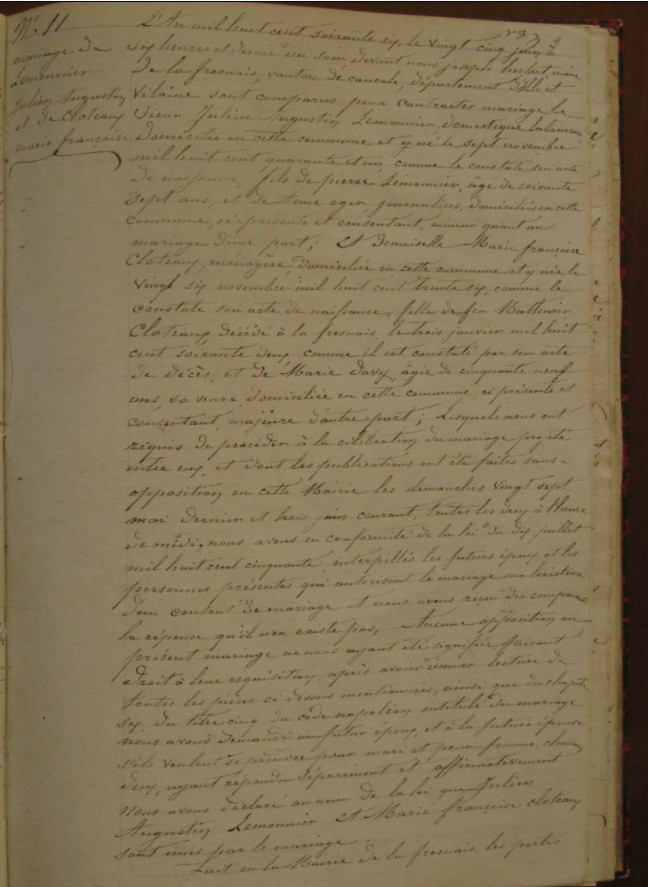 N° 11
mariage de
Lemonnier
Julien Augustin
et de Cloteaux
marie françoise
L'An mil huit cent soixante six, le vingt cinq juin à
six heures et demie du soir devant nous joseph herbert, maire
De la fresnais, canton de cancale, département d'ille et
Vilaine sont comparus pour contracter mariage le
sieur Julien Augustin Lemonnier, domestique laboureur
domicilié en cette commune et y né le sept novembre
mil huit cent quarante et un, comme le constate son acte
de naissance, fils de pierre Lemonnier, âgé de soixante
sept ans, et de journaliers, domiciliés en cette
commune, ci présents et consentant, mineur quant au
mariage d'une part; Et demoiselle Marie françoise
Cloteaux, ménagère, domiciliée en cette commune et y née le
vingt six novembre mil huit cent trente six, comme le
constate son acte de naissance, fille de feu
Cloteaux, décédé à la fresnais, le trois janvier mil huit
cent soixante deux, comme il est constaté par son acte
de décès, et de Marie Davy, âgée de cinquante neuf
ans, sa veuve, domiciliée en cette commune, ci présente et
consentant, majeure d'autre part; Lesquels nous ont
requis de procéder à la célébration du mariage projeté
entre eux, et dont les publications ont été faites sans
opposition en cette Mairie les dimanches vingt sept
mai dernier et trois juin courant, toutes les deux à l'heure
de midi, nous avons en conformité de la loi du dix juillet
mil huit cent cinquante, interpellés les futurs époux et les
personnes présentes qui autorisent le mariage sur l'existence
d'un contrat de mariage et nous avons recu des comparans
la réponse qu'il n'en existe pas, Aucune opposition au
présent mariage ne nous ayant été signifiée faisant
droit à leur réquisition, après avoir donner lecture de
toutes les pièces ci dessus mentionnées, ainsi que du chapitre
six du titre cinq du code napoléon intitulé du mariage
nous avons demandé au futur époux, et à la future épouse
s'ils veulent se prendre pour mari et pour femme, chacun
d'eux, ayant répondu séparément et affirmativement
Nous avons déclaré au nom de la loi que Julien
Augustin Lemonnier Et Marie françoise cloteaux
sont unis par le mariage.
Fait en la Mairie de la fresnais, les portes